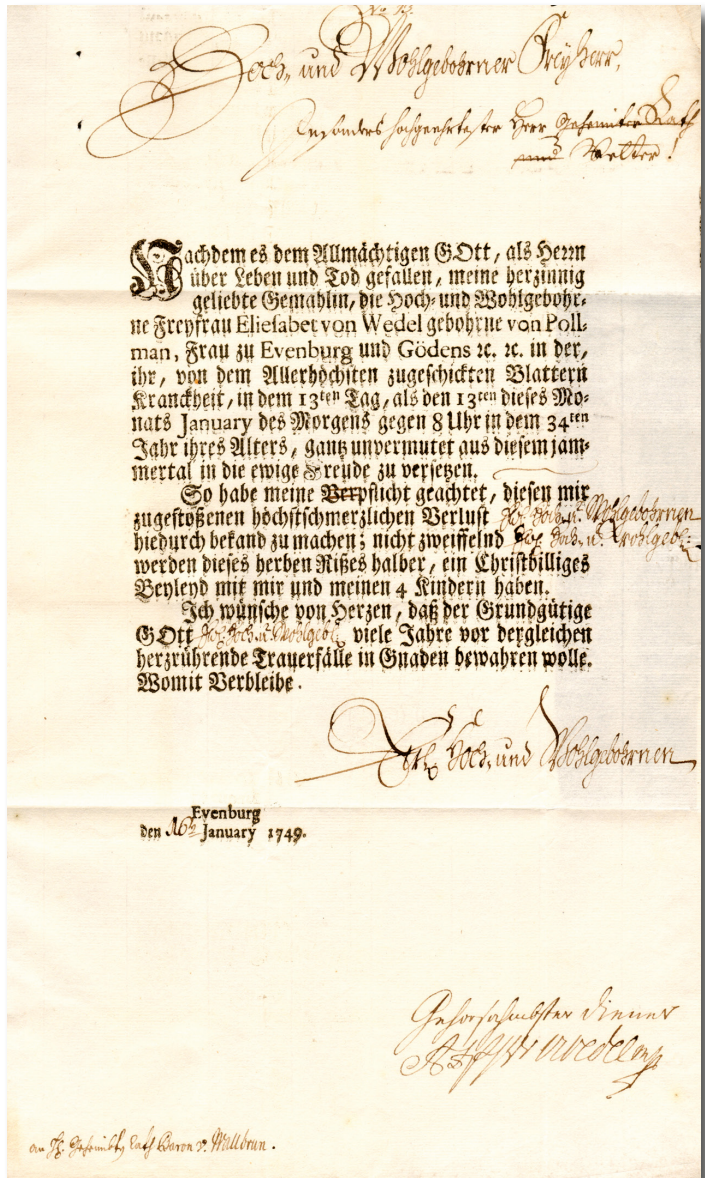 Hoch- und Wohlgebohrner Freyherr,
Insonders hochgeehrtester Herr Geheimter Rath
und Vetter!
Nachdem es dem Allmächtigen GOtt, als Herrn
über Leben und Tod gefallen, meine herzinnig
geliebte Gemahlin, die Hoch- und Wohlgebohr-
ne Freyfrau Eliesabet von Wedel gebohrne von Poll-
man, Frau zu Evenburg und Gödens ꝛc. ꝛc. in der,
ihr, von dem Allerhöchsten zugeschickten Blattern
Kranckheit, in dem 13ten Tag, als den 13ten dieses Mo-
nats January des Morgens gegen 8 Uhr in dem 34ten
Jahr ihres Alters, gantz unvermutet aus diesem jam-
mertal in die ewige Freude zu versetzen.
So habe meine Verpflicht geachtet, diesen mir
zugestoßenen höchstschmerzlichen Verlust Hoch u. Wohlgebohrnen
hiedurch bekand zu machen; nicht zweiffelnd Hoch u. Wohlgeb:
werden dieses herben Rißes halber, ein Christbilliges
Beyleyd mit mir und meinen 4 Kindern haben.
Ich wünsche von Herzen, daß der Grundgütige
GOtt Hoch u. Wohlgeb: viele Jahre vor dergleichen
herzrührende Trauerfälle in Gnaden bewahren wolle.
Womit Verbleibe.
Hoch- und Wohlgebohrnen
Evenburg
den 16t January 1749.
Gehorsahmbster diener
Wedel
an H. Geheimbt Rath Baron v. Wallbrun.